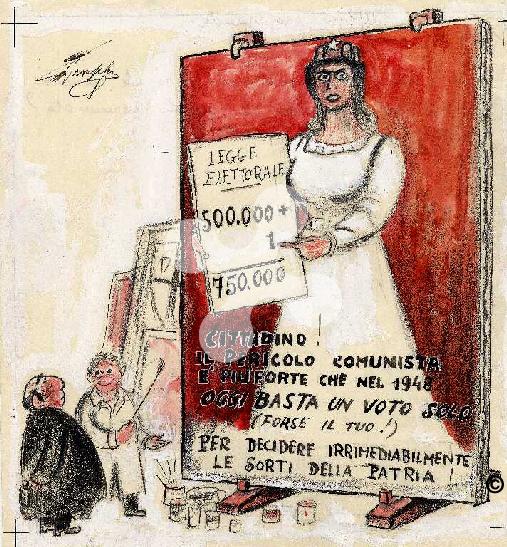 LEGGE
ELETTORALE
500.000 +
1
750.000
CITTADINO !
IL PERICOLO COMUNISTA
E PIÙ FORTE CHE NEL 1948
OGGI BASTA UN VOTO SOLO
(FORSE IL TUO !)
PER DECIDERE IRRIMEDIABILMENTE
LE SORTI DELLA PATRIA !
©